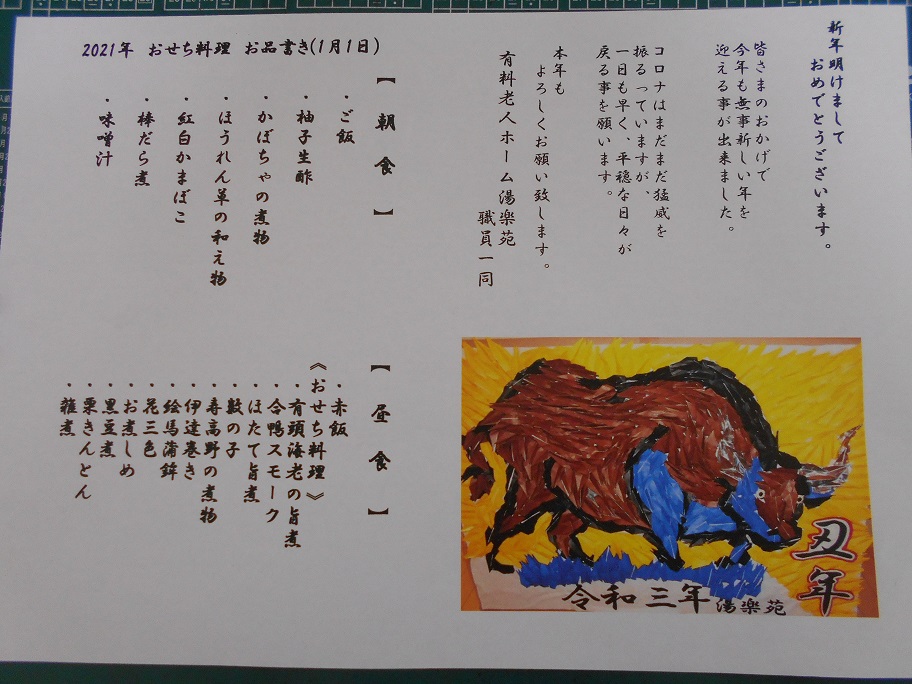 新年明けまして
おめでとうございます。
皆さまのおかげで
今年も無事新しい年を
迎える事が出来ました。
コロナはまだまだ猛威を
振るっていますが、
一日も早く、平穏な日々が
戻る事を願います。
本年も
よろしくお願い致します。
有料老人ホーム湯楽苑
職員一同
2021年 おせち料理 お品書き(1月1日)
【 朝 食 】
・ご飯
・柚子生酢
・かぼちゃの煮物
・ほうれん草の和え物
・紅白かまぼこ
・棒だら煮
・味噌汁
【 昼 食 】
・赤飯
《おせち料理》
・有頭海老の旨煮
・合鴨スモーク
・ほたて旨煮
・数の子
・寿高野の煮物
・伊達巻き
・絵馬蒲鉾
・花三色
・お煮しめ
・黒豆煮
・栗きんとん
・雑煮
丑年
令和三年 湯楽苑